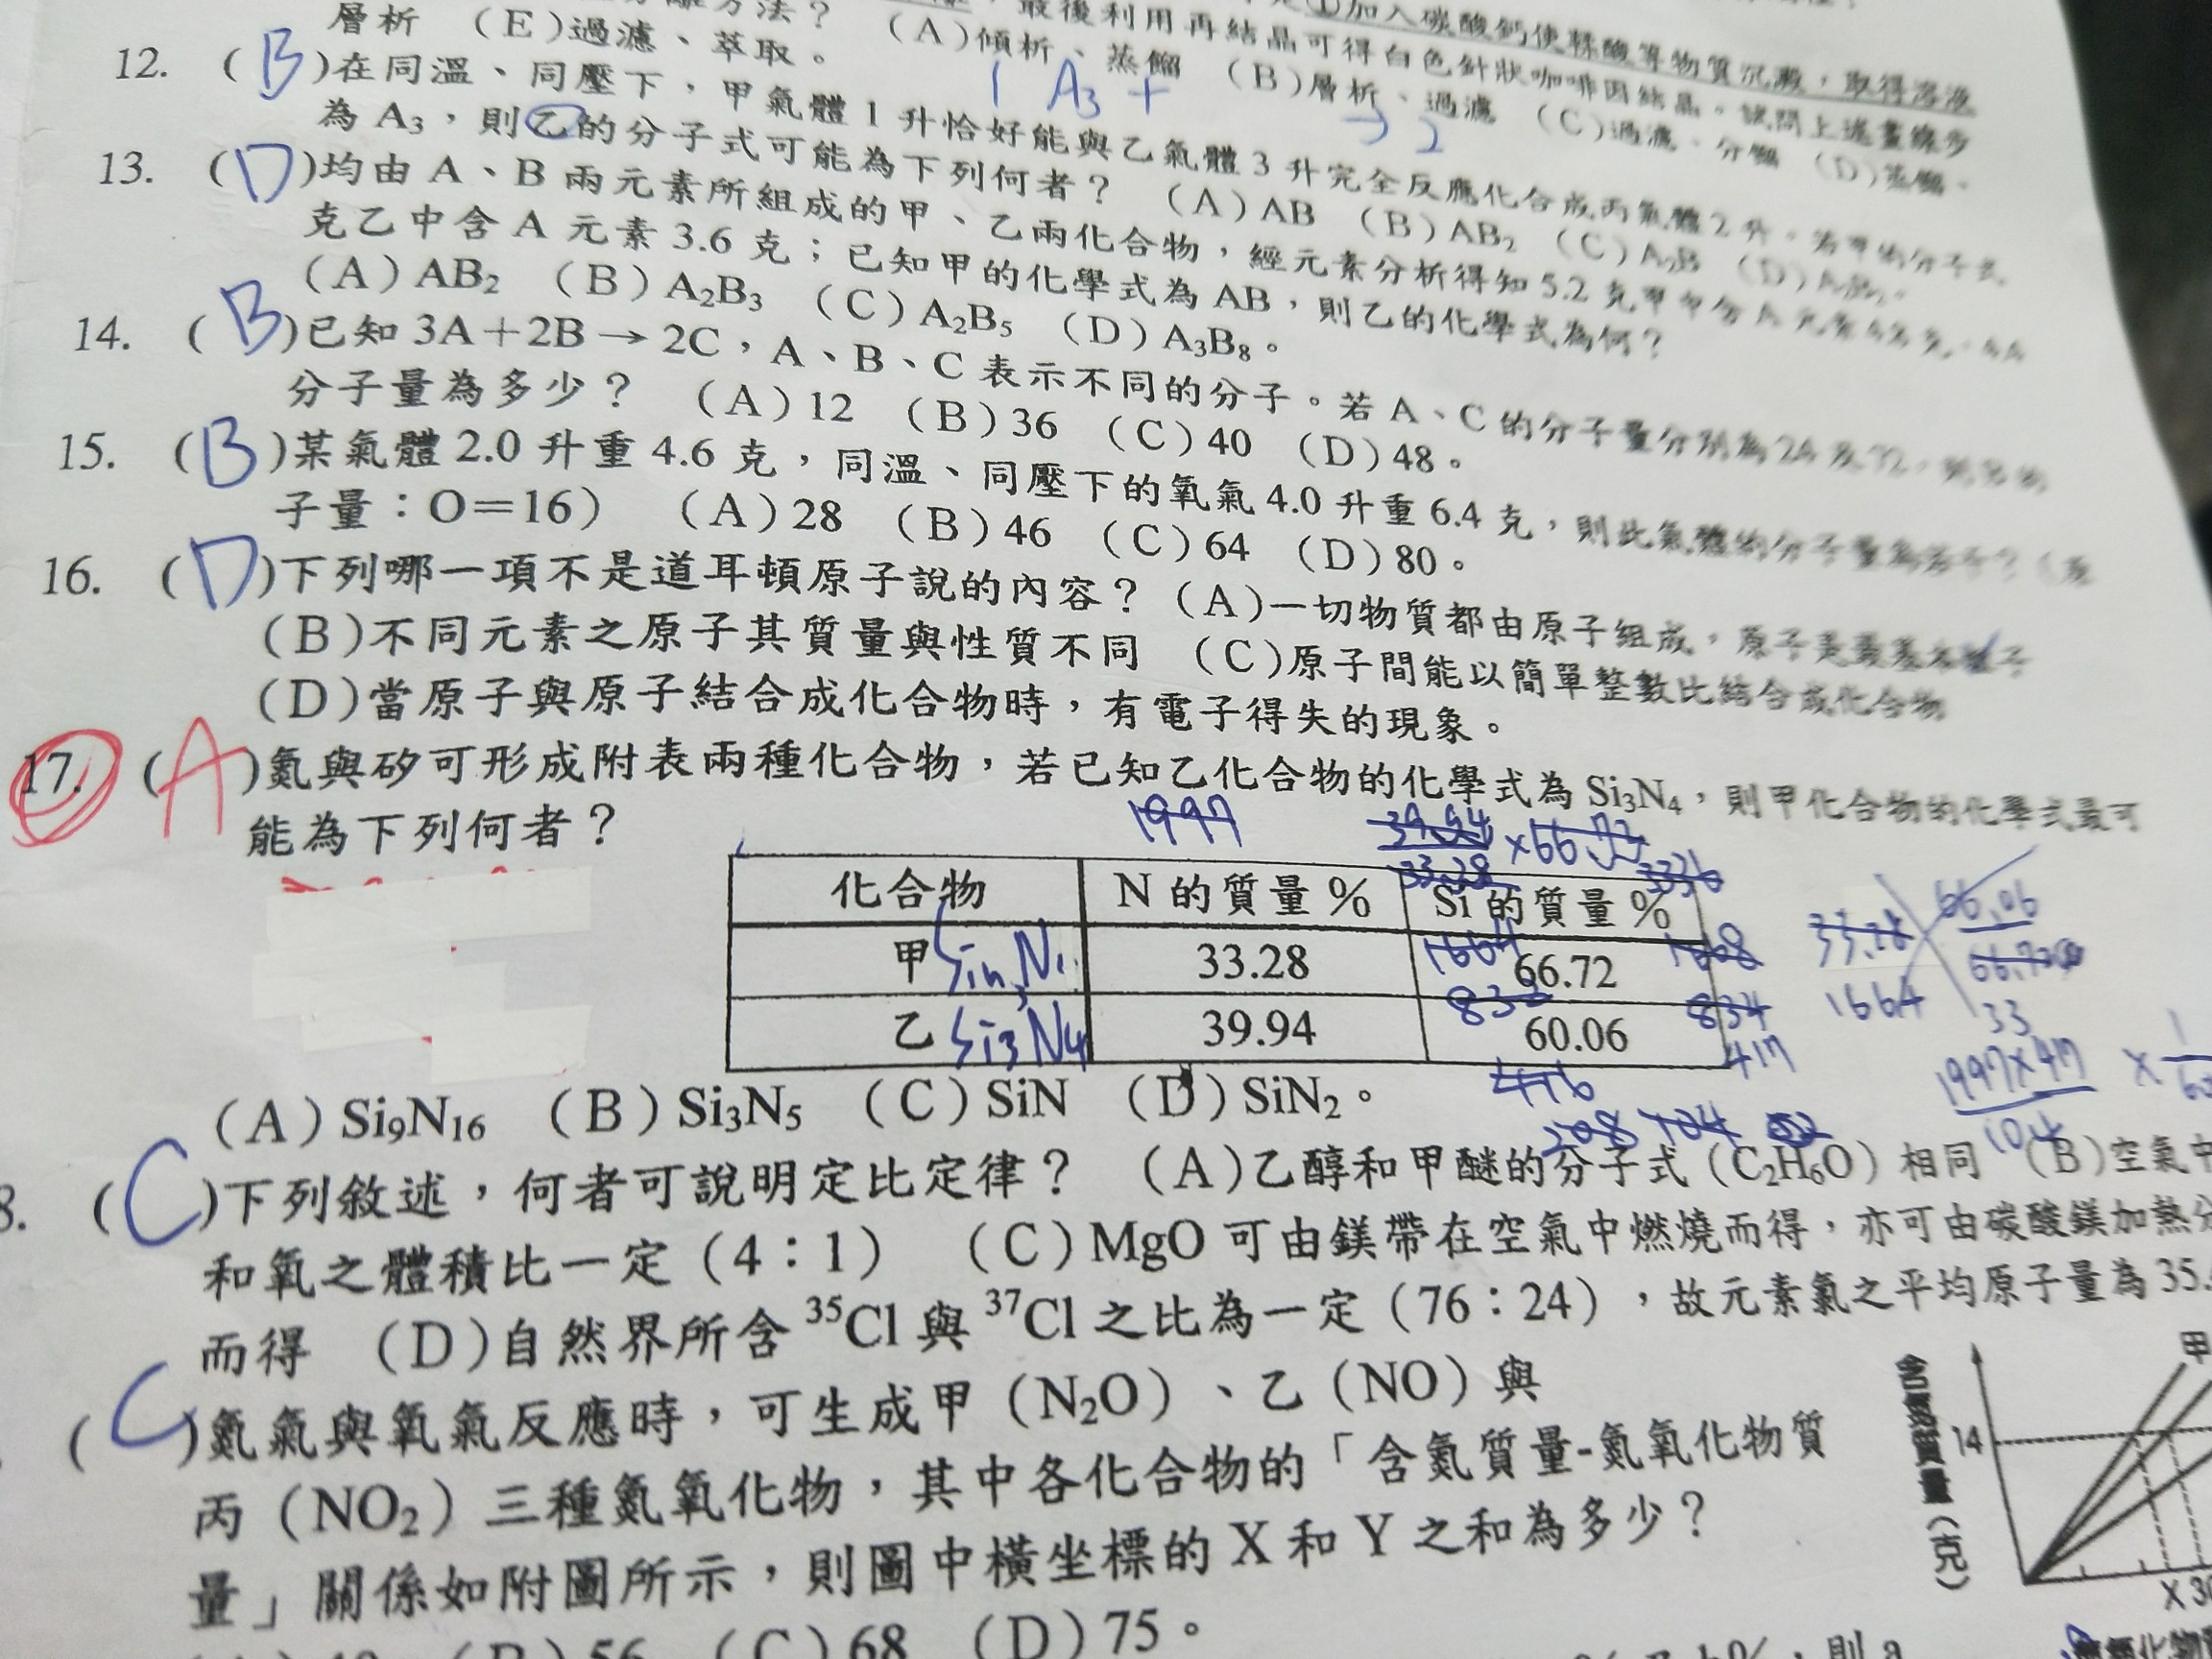 加入碳酸鈣使鞣酸等物質沉澱,取得溶液
最後利用再結晶可得白色針狀咖啡因結晶。試問上述畫線步
方法? (A)傾析、蒸餾 (B)層析、過濾 (C)過濾、分餾 (D)蒸餾、
層析 (E)過濾、萃取。
12. (B)在同溫、同壓下,甲氣體1升恰好能與乙氣體3升完全反應化合成丙氣體2升。若甲的分子式
1 A₃ +
→ 2
為A₃,則乙的分子式可能為下列何者? (A)AB (B)AB₂ (C)A₂B (D)
13. (D)均由A、B兩元素所組成的甲、乙兩化合物,經元素分析得知5.2克甲中含A元素4.8克,4.4
克乙中含A元素3.6克;已知甲的化學式為AB,則乙的化學式為何?
(A)AB₂ (B)A₂B₃ (C)A₂B₅ (D)A₃B₈。
14. (B)已知3A+2B→2C,A、B、C表示不同的分子。若A、C的分子量分別為24及72,則B的
分子量為多少? (A)12 (B)36 (C)40 (D)48。
15. (B)某氣體2.0升重4.6克,同溫、同壓下的氧氣4.0升重6.4克,則此氣體的分子量為若干?(原
子量:O=16) (A)28 (B)46 (C)64 (D)80。
16. (D)下列哪一項不是道耳頓原子說的內容? (A)一切物質都由原子組成,原子是最基本粒子
(B)不同元素之原子其質量與性質不同 (C)原子間能以簡單整數比結合成化合物
(D)當原子與原子結合成化合物時,有電子得失的現象。
17. (A)氮與矽可形成附表兩種化合物,若已知乙化合物的化學式為Si₃N₄,則甲化合物的化學式最可
能為下列何者?
1997 39.94 ×66.72
33.28 3336
化合物 N的質量% Si的質量%
甲 33.28 66.72
1664 1668 33.28 66.06
832 834 1664 33
乙 Si₃N₄ 39.94 60.06
416 417 1997×417
208 104 52 104
(A)Si₉N₁₆ (B)Si₃N₅ (C)SiN (D)SiN₂。
8. (C)下列敘述,何者可說明定比定律? (A)乙醇和甲醚的分子式(C₂H₆O)相同 (B)空氣中
和氧之體積比一定(4:1) (C)MgO可由鎂帶在空氣中燃燒而得,亦可由碳酸鎂加熱分
而得 (D)自然界所含³⁵Cl與³⁷Cl之比為一定(76:24),故元素氯之平均原子量為35.
(C)氮氣與氧氣反應時,可生成甲(N₂O)、乙(NO)與
丙(NO₂)三種氮氧化物,其中各化合物的「含氮質量-氮氧化物質
量」關係如附圖所示,則圖中橫坐標的X和Y之和為多少?
(B)56 (C)68 (D)75。
含氮質量(克)
甲
14
X 30